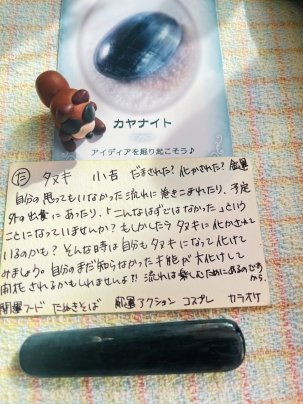 カヤナイト
アイディアを掘り起こそう♪
た タヌキ 小吉 だまされた?化かされた?金運
自分の思ってもいなかった流れに巻きこまれたり、予定
外の出費にあったり、「こんなはずではなかった」という
ことになっていませんか?もしかしたらタヌキに化かされて
いるのかも?そんな時は自分もタヌキになって化けて
みましょう。自分のまだ知らなかった才能が大化けして
開花されるかもしれませんよ!!流れは楽しむためにあるのですから
開運フード たぬきそば 開運アクション コスプレ カラオケ